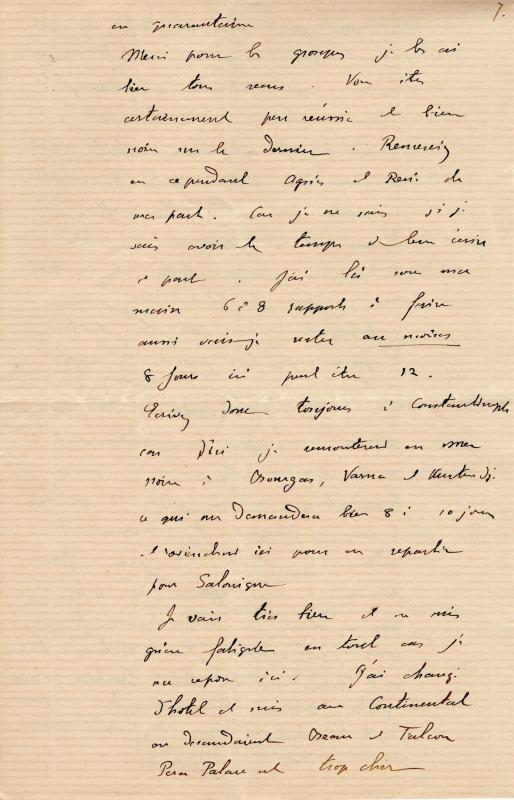 7.
en quarantaine
Merci pour les groupes je les ai
bien tous reçus. Vous êtes
certainement peu réussie et bien
noire sur le dernier. Remerciez
en cependant Agnès et René de
ma part. Car je ne sais si je
vais avoir le temps de leur écrire
à part. J'ai là sous ma
main 6 à 8 rapports à faire
aussi vais-je rester au moins
8 jours ici peut être 12.
Ecrivez donc toujours à Constantinople
car d'ici je remonterai en mer
noire à Bourgas, Varna et Kustendj.
ce qui me demandera bien 8 à 10 jours
et reviendrai ici pour en repartir
pour Salonique
Je vais très bien et ne suis
guère fatiguée en tout cas je
me repose ici. J'ai changé
d'hôtel et suis au Continental
où descendaient et
Pera Palace est trop cher